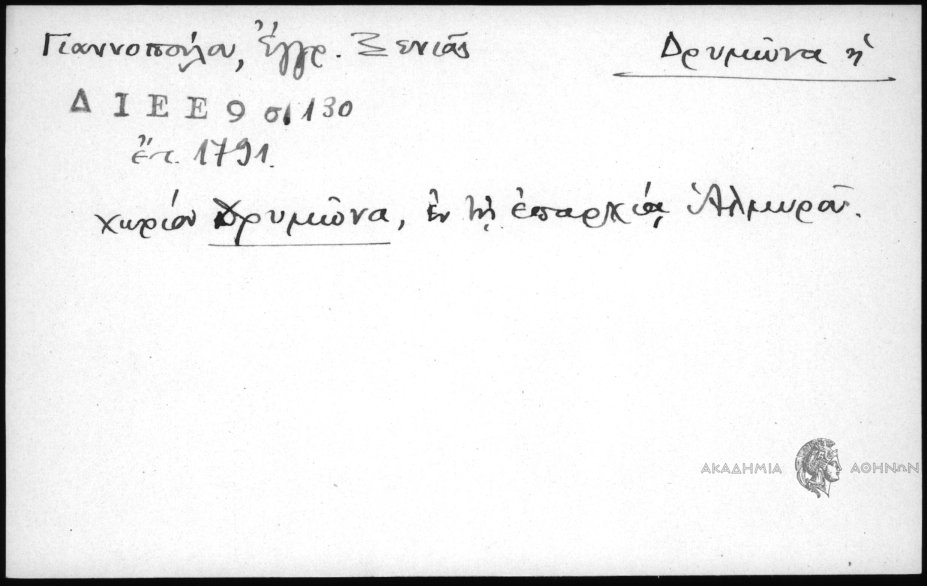 Γιαννοπούλου, Ἔγγρ. Ξενιᾶς
Δρυμῶνα ἡ
Δ Ι Ε Ε 9 σ. 130
ἔτ. 1791.
χωρίον Δρυμῶνα, ἐν τῇ ἐπαρχίᾳ Ἁλμυροῦ.
ΑΚΑΔΗΜΙΑ ΑΘΗΝΩΝ